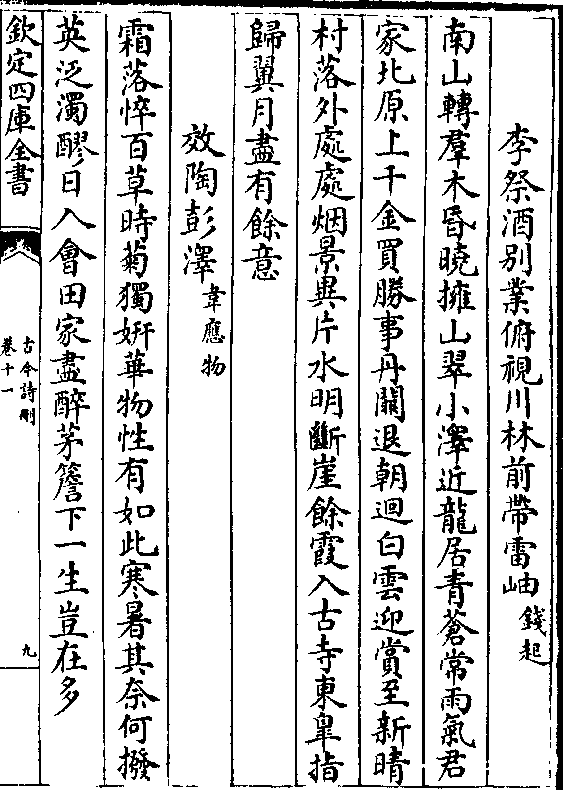 李祭酒別業俯視川林前帶雷岫錢起
南山轉羣木昏曉擁山翠小澤近龍居青蒼常雨氣君
家北原上千金買勝事丹闕退朝迴白雲迎賞至新晴
村落外處處烟景異片水明斷崖餘霞入古寺東皐指
歸翼月盡有餘意
效陶彭澤韋應物
霜落悴百草時菊獨姸華物性有如此寒暑其奈何撥
英泛濁醪日入會田家盡醉茅簷下一生豈在多
欽定四庫全書
古今詩刪
卷十一
九